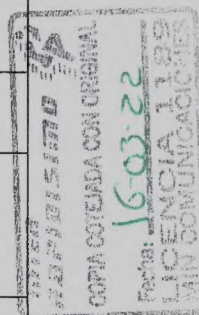 inter
rapidísimo
COPIA COTEJADA CON ORIGINAL
Fecha: 16-03-22
LICENCIA 1189
MIN COMUNICACIONES